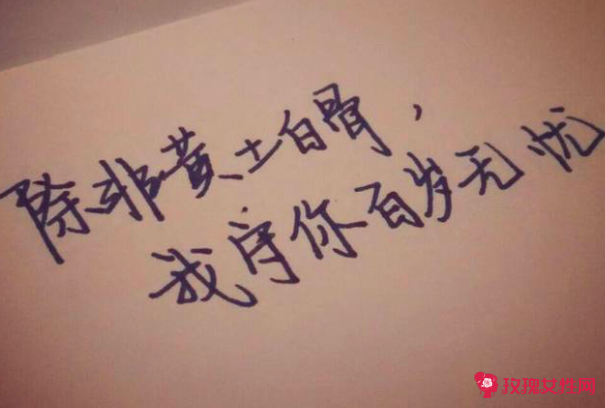 除非黄土白骨,
我守你百岁无忧
玫瑰女性网